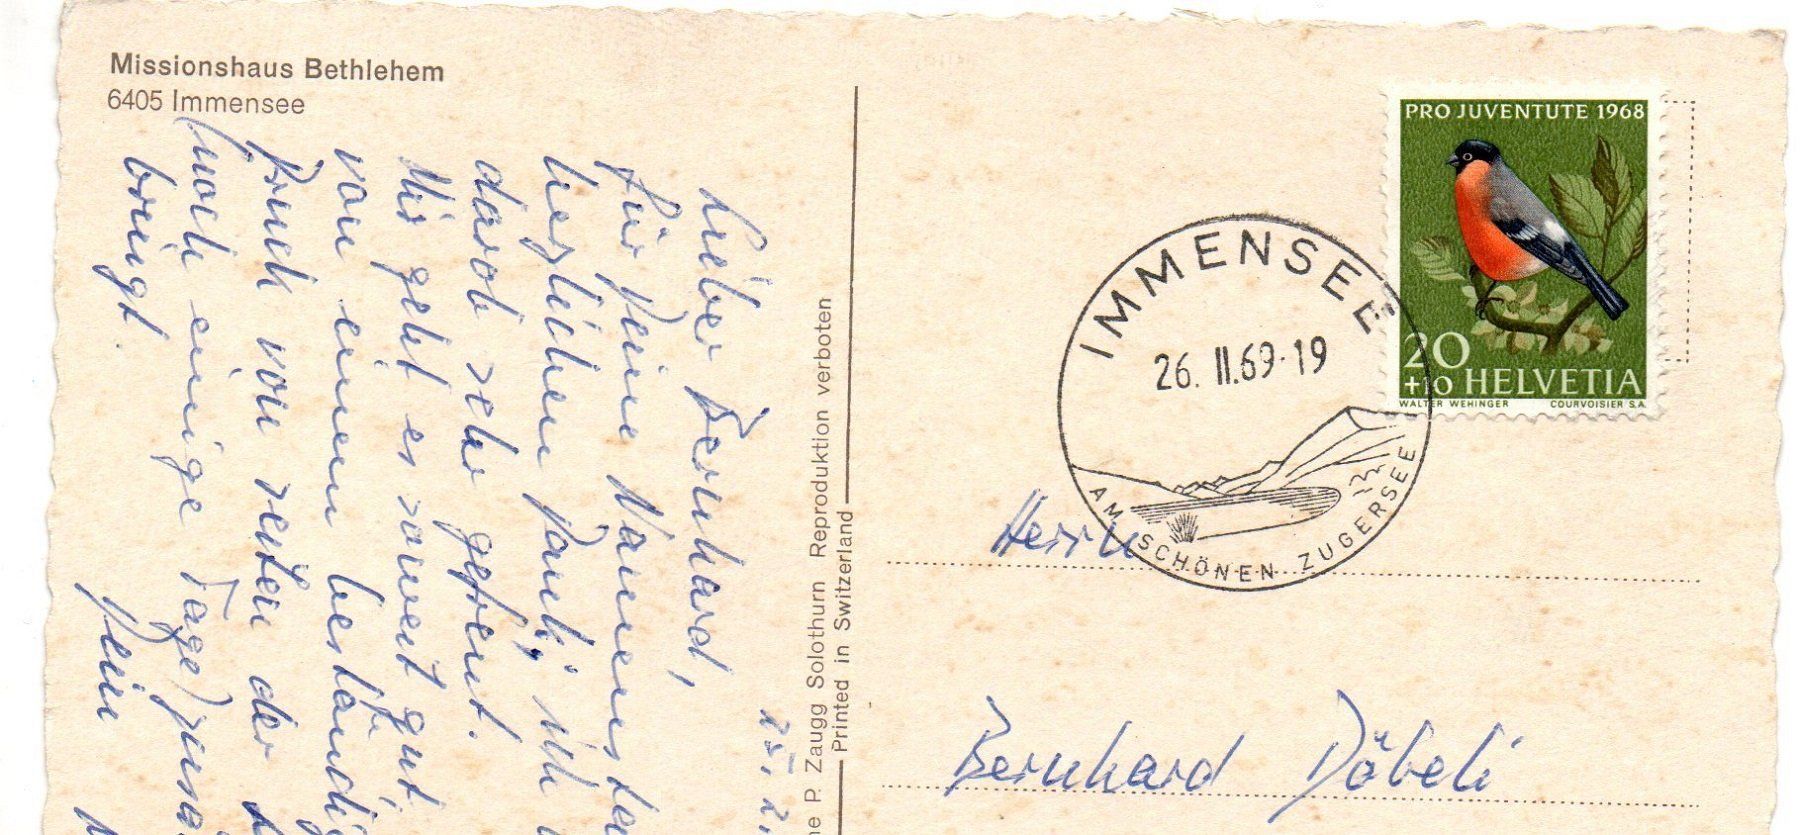 Missionshaus Bethlehem
6405 Immensee
25. 2.
Lieber Bernhard,
für Deine
herzlichen Dank, ich
darob sehr gefreut.
Mir geht es soweit gut
von einem
Druck von seiten der
noch einige Tage)
bringt.
Dein
P. Zaugg Solothurn Reproduktion verboten
Printed in Switzerland
PRO JUVENTUTE 1968
20
+10 HELVETIA
WALTER WEHINGER COURVOISIER S.A.
IMMENSEE
26. II. 69-19
AM SCHÖNEN ZUGERSEE
Herrn
Bernhard Döbeli